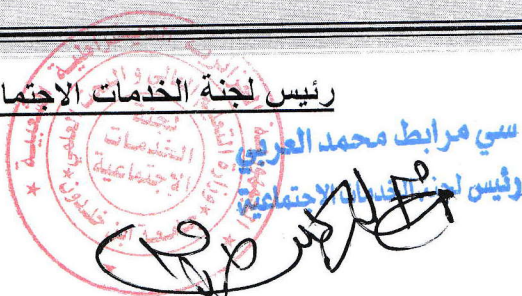 رئيس لجنة الخدمات الاجتما
سي مرابط محمد العربي
رئيس لجنة الخدمات الاجتماعية
لجنة
الخدمات
الاجتماعية